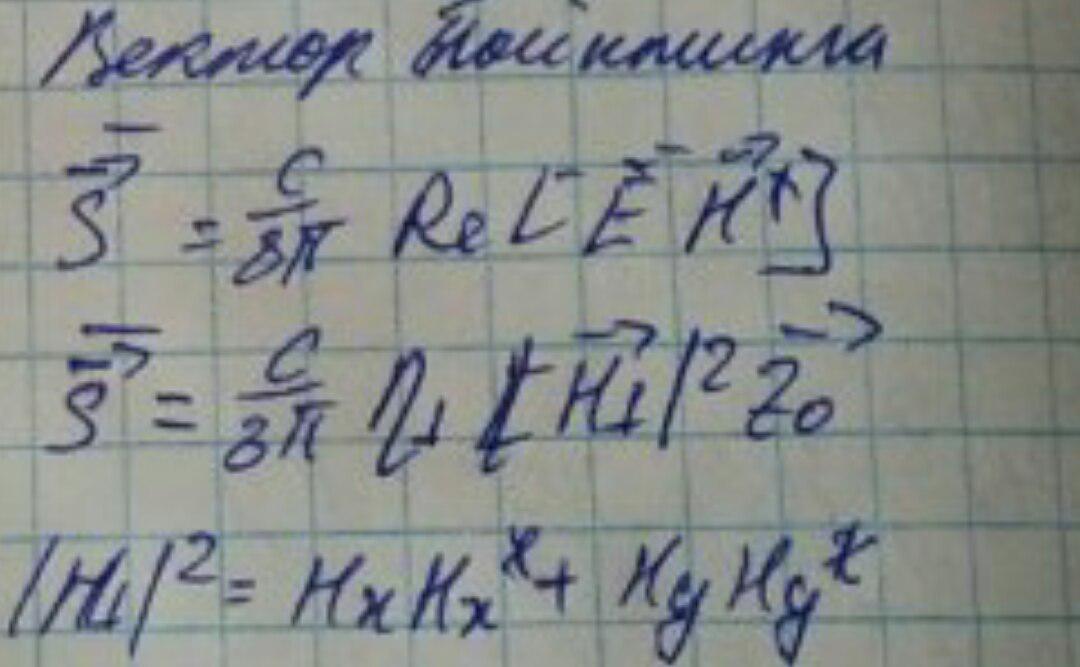 Вектор Пойнтинга
$\overline{\vec{S}} = \frac{c}{8\pi} Re [\vec{E} \vec{H}^*]$
$\overline{\vec{S}} = \frac{c}{8\pi} \eta_\perp |\vec{H}_\perp|^2 \vec{z}_0$
$|H_\perp|^2 = H_x H_x^* + H_y H_y^*$